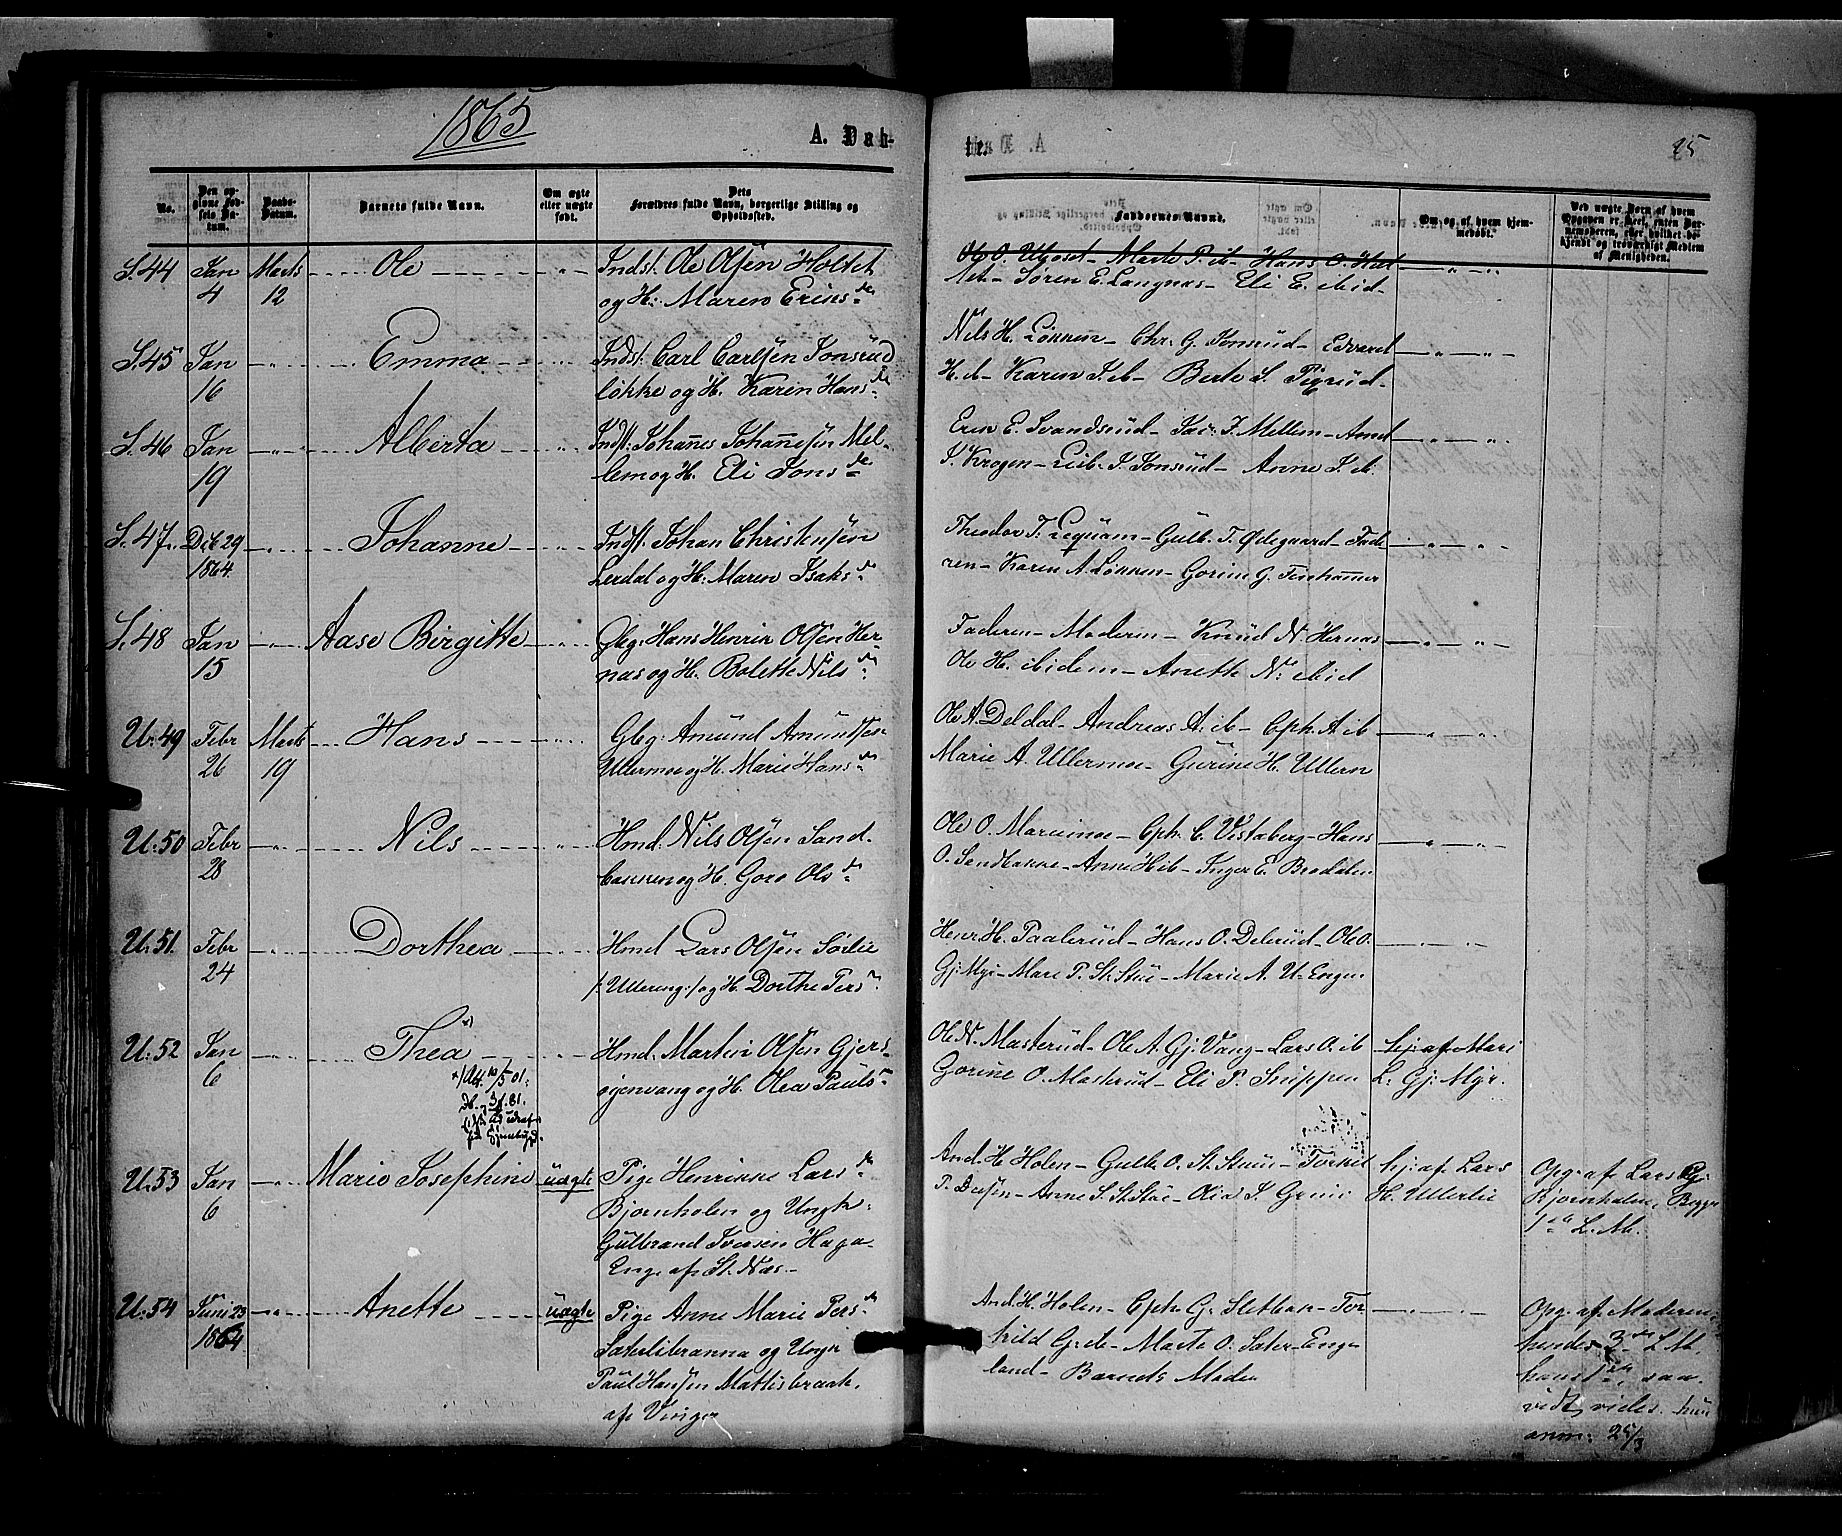 1865
A. Dåb-
te.
25
No.
Den opgivne Fødsels Datum.
Daabs-Datum.
Barnets fulde Navn.
Om ægte eller uægte født.
Dets Forældres fulde Navn, borgerlige Stilling og Opholdssted.
Faddernes Navne.
Om, og af, hvem hjemmedøbt.
Ved uægte Børn af hvem Opgaven er skeet, enten Barnemoderen, eller hvilket bekjendt og troværdigt Medlem af Menigheden.
S. 44 Jan 4 Marts 12 Ole
Indst. Ole Olsen Holtet
og H: Maren Erics d.
Ole O. Marte P. ib Hans O. Hol-
tet- Søren E. Langnæs- Eli E. ibid-
S. 45 Jan 16 Emma
Indst. Carl Carlsen Jonsrud
løkke og H. Karen Hans d.
Nils H. Løkken- Chr: G. Jonsrud- Edvard
H. ib- Karen J. ib- Berte S. Pigrud-
S. 46 Jan 19 Alberta
Indst: Johannes Johannesen Mel-
lem og H. Eli Jons d.
Eric E. Svandsrud- Jac: J. Mellem- Arnt
S. Krogen- J. Jonsrud- Anne J. ib.
S. 47. Dcb 29 1864. Johanne
Indst. Johan Christensen
Lerdal og H: Maren Isaks d.
Theodor T. Lequam- Gulb. T. Ødegaard- Fade
ren- Karen A. Løkken- Gorine G. Finhammer
S. 48 Jan 15 Aase Birgitte
Gbg: Hans Henric Olsen Her-
næs og H. Bolette Nils d.
Faderen- Moderen- Knud N. Hernæs
Ole H. ibidem- Anette N. ibid
U. 49 Febr 26 Marts 19 Hans
Gbg: Amund Amundsen
Ullermoe og H. Marie Hans d.
Ole A. Deldal- Andreas A. ib- Eph. A ib
Marie A. Ullermoe- Gurine H. Ullern
U. 50 Febr 28 Nils
Hmd. Nils Olsen Sand-
bakken og H. Goro Ols d.
Ole O. Marienmoe- Eph. C. Vestaberg- Hans
O. Sandbakke- Anne H ib- Inger E. Brodalen
U. 51. Febr 24 Dorthea
Hmd Lars Olsen Sørlie
/: Ullereng :/ og H. Dorthe Pers d.
Henr. H. Paalerud- Hans O. Delerud- Ole O.
Gj: Myr- Mari P. St. Stue- Marie A. U- Engen
U. 52 Jan 6 Thea
x) Att. 10/5 01.
Hmd. Martin Olsen Gjers-
øienvang og H. Olea Pauls d.
Ole N. Masterud- Ole A. Gj. Vang- Lars O. ib
Gorine O. Masterud- Eli P. Snippen
hj: af Mari
L. Gj: Myr.
U. 53 Jan 6 Marie Josephine uægte
Pige Henrikke Lars d.
Bjørnholen og Ungk.
Gulbrand Iversen Haga-
Enge af St. Næs-
And. H. Holen- Gulb. O. St. Stue- Torkil
P. Dysen- Anne S. St. Stue- Olia S. Grini
hj: af Lars
H. Ullerlie
Opg. af Lars
Bjørnholen, Begges
1ste L. M.
U. 54 Juni 23 1864 Anette uægte
Pige Anne Marie Pers d.
Sæterlibranna og Ungk
Paul Hansen Mattisbraate
af Vinger
And. H. Holen- Eph. G. Sletban- Tor-
kild G. ib- Marte O. Sæter-Eng-
land- Barnets Moder
Opg. af Moderen
hendes 3die L. M.
hans 1ste, saa-
vidt vides. hun
anm: 25/3